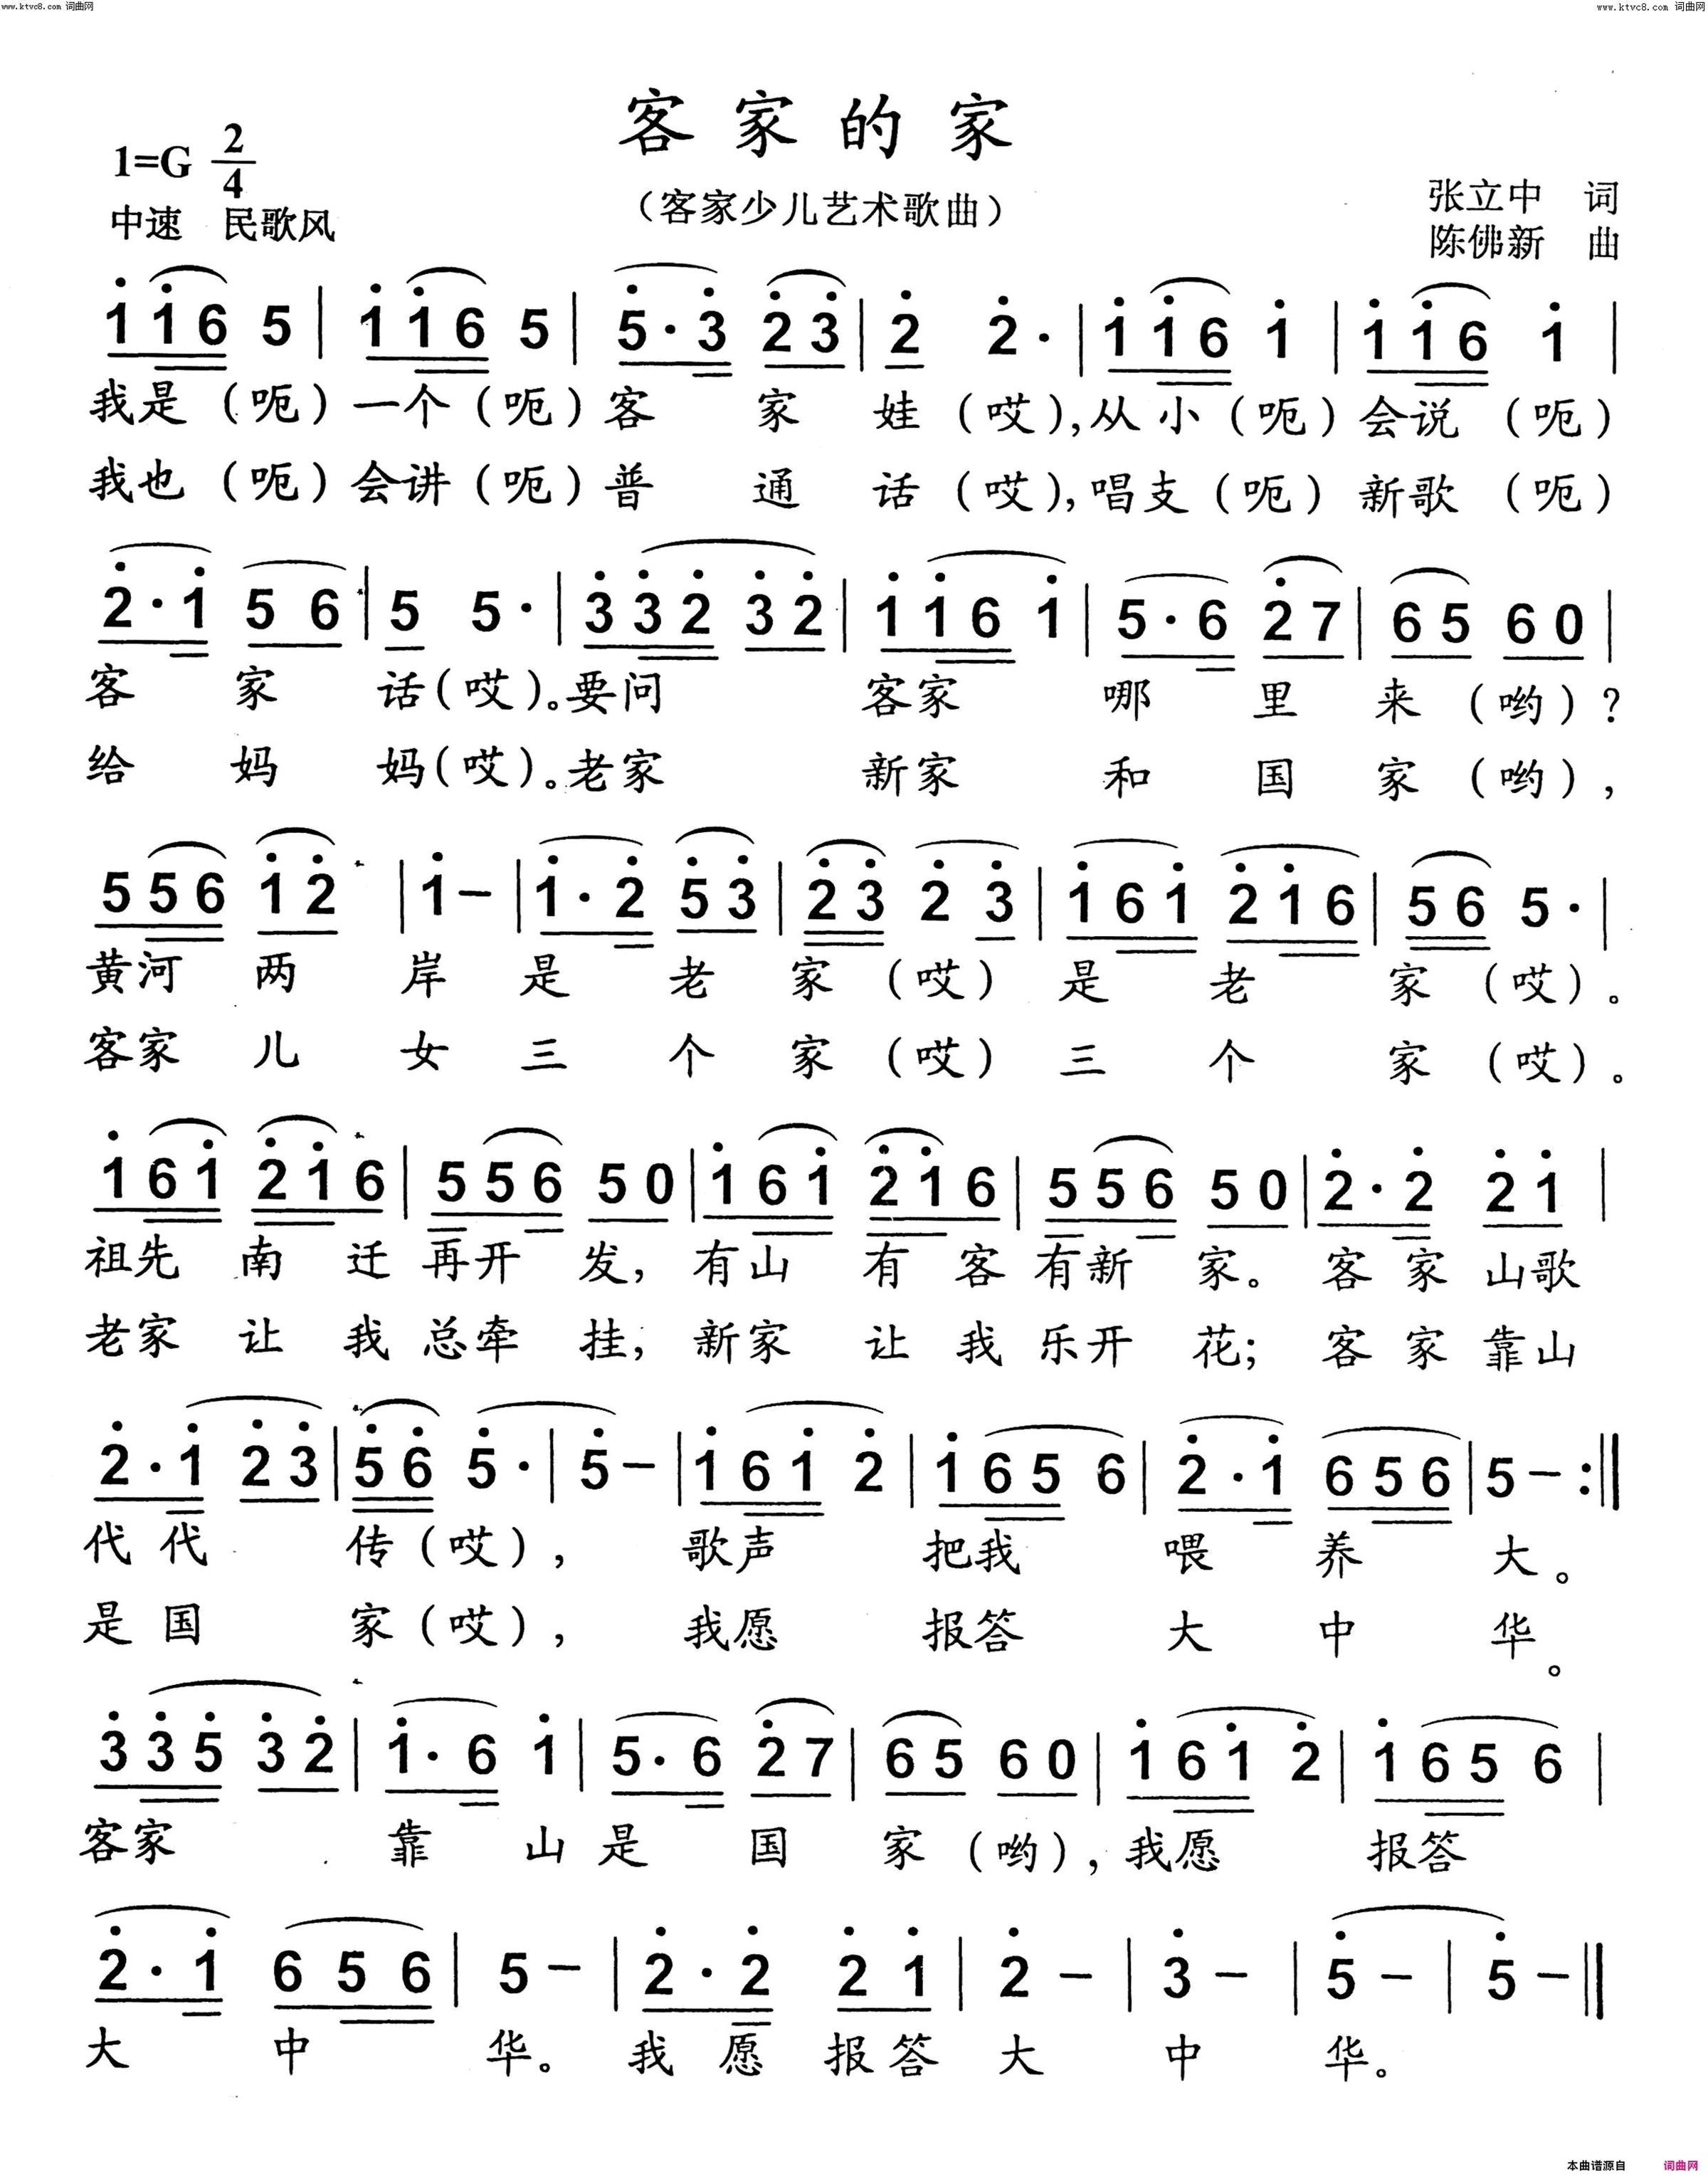 www.ktvc8.com 词曲网
www.ktvc8.com 词曲网
客家的家
1=G 2/4
（客家少儿艺术歌曲）
张立中 词
中速 民歌风
陈佛新 曲
1̇ 1̇ 6 5 | 1̇ 1̇ 6 5 | 5̇ · 3̇ 2̇ 3̇ | 2̇ 2̇ · | 1̇ 1̇ 6 1̇ | 1̇ 1̇ 6 1̇ |
我是（呃）一个（呃）客 家 娃（哎），从小（呃）会说（呃）
我也（呃）会讲（呃）普 通 话（哎），唱支（呃）新歌（呃）
2̇ · 1̇ 5 6 | 5 5 · | 3̇ 3̇ 2̇ 3̇ 2̇ | 1̇ 1̇ 6 1̇ | 5 · 6 2̇ 7 | 6 5 6 0 |
客 家 话（哎）。要问 客家 哪 里 来（哟）？
给 妈 妈（哎）。老家 新家 和 国 家（哟），
5 5 6 1̇ 2̇ | 1̇ – | 1̇ · 2̇ 5̇ 3̇ | 2̇ 3̇ 2̇ 3̇ | 1̇ 6 1̇ 2̇ 1̇ 6 | 5 6 5 · |
黄河 两 岸 是 老 家（哎）是 老 家（哎）。
客家 儿 女 三 个 家（哎）三 个 家（哎）。
1̇ 6 1̇ 2̇ 1̇ 6 | 5 5 6 5 0 | 1̇ 6 1̇ 2̇ 1̇ 6 | 5 5 6 5 0 | 2̇ · 2̇ 2̇ 1̇ |
祖先 南 迁 再开 发，有山 有 客 有新 家。客 家 山歌
老家 让 我 总牵 挂，新家 让 我 乐开 花；客 家 靠山
2̇ · 1̇ 2̇ 3̇ | 5̇ 6̇ 5̇ · | 5̇ – | 1̇ 6 1̇ 2̇ | 1̇ 6 5 6 | 2̇ · 1̇ 6 5 6 | 5 – :‖
代 代 传（哎），歌声 把我 喂 养 大。
是 国 家（哎），我愿 报答 大 中 华。
3̇ 3̇ 5̇ 3̇ 2̇ | 1̇ · 6 1̇ | 5 · 6 2̇ 7 | 6 5 6 0 | 1̇ 6 1̇ 2̇ | 1̇ 6 5 6 |
客家 靠 山 是 国 家（哟），我愿 报答
2̇ · 1̇ 6 5 6 | 5 – | 2̇ · 2̇ 2̇ 1̇ | 2̇ – | 3̇ – | 5̇ – | 5̇ – ‖
大 中 华。我 愿 报答 大 中 华。
本曲谱源自 词曲网